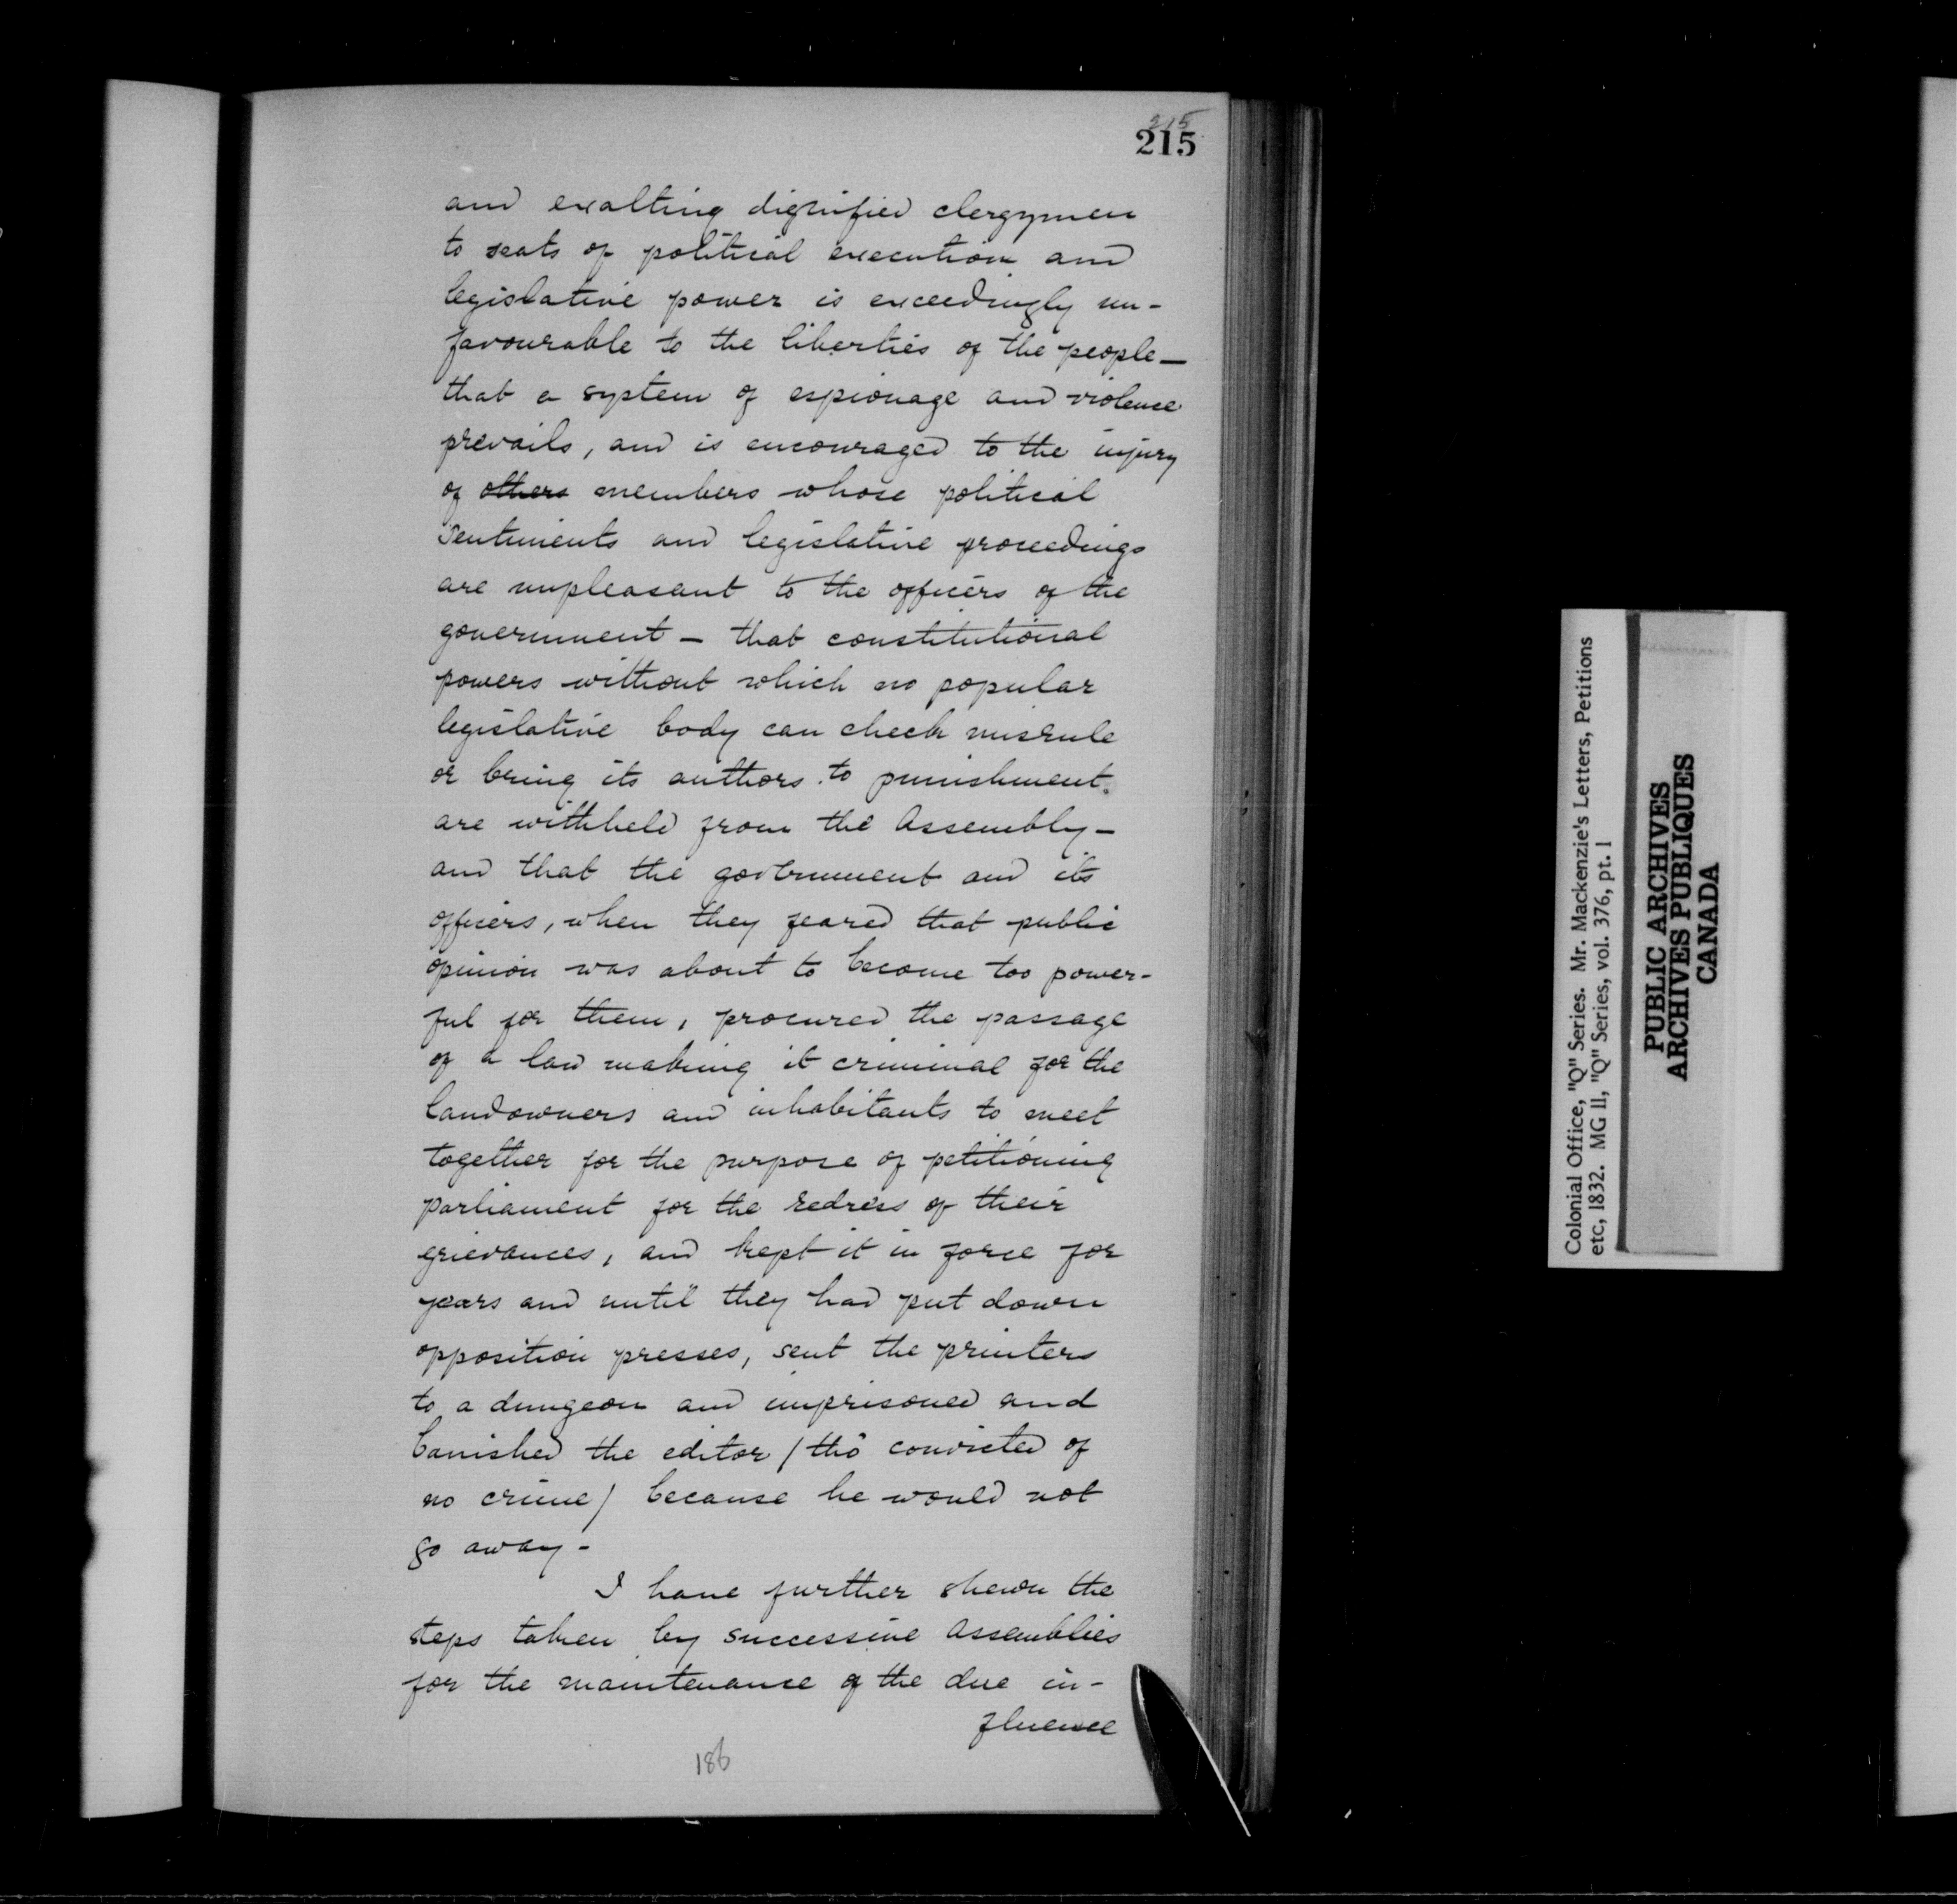 215
215
and exalting dignified clergymen
to seats of political execution and
legislative power is exceedingly un-
favourable to the liberties of the people—
that a system of espionage and violence
prevails, and is encouraged to the injury
of others members whose political
sentiments and legislative proceedings
are unpleasant to the officers of the
government — that constitutional
powers without which no popular
legislative body can check misrule
or bring its authors to punishment
are withheld from the Assembly —
and that the government and its
officers, when they feared that public
opinion was about to become too power-
ful for them, procured the passage
of a law making it criminal for the
landowners and inhabitants to meet
together for the purpose of petitioning
parliament for the redress of their
grievances, and kept it in force for
years and until they had put down
opposition presses, sent the printers
to a dungeon and imprisoned and
banished the editor (tho' convicted of
no crime) because he would not
go away -
I have further shewn the
steps taken by successive Assemblies
for the maintenance of the due in-
fluence
186
Colonial Office, "Q" Series. Mr. Mackenzie's Letters, Petitions
etc, 1832. MG 11, "Q" Series, vol. 376, pt. 1
PUBLIC ARCHIVES
ARCHIVES PUBLIQUES
CANADA